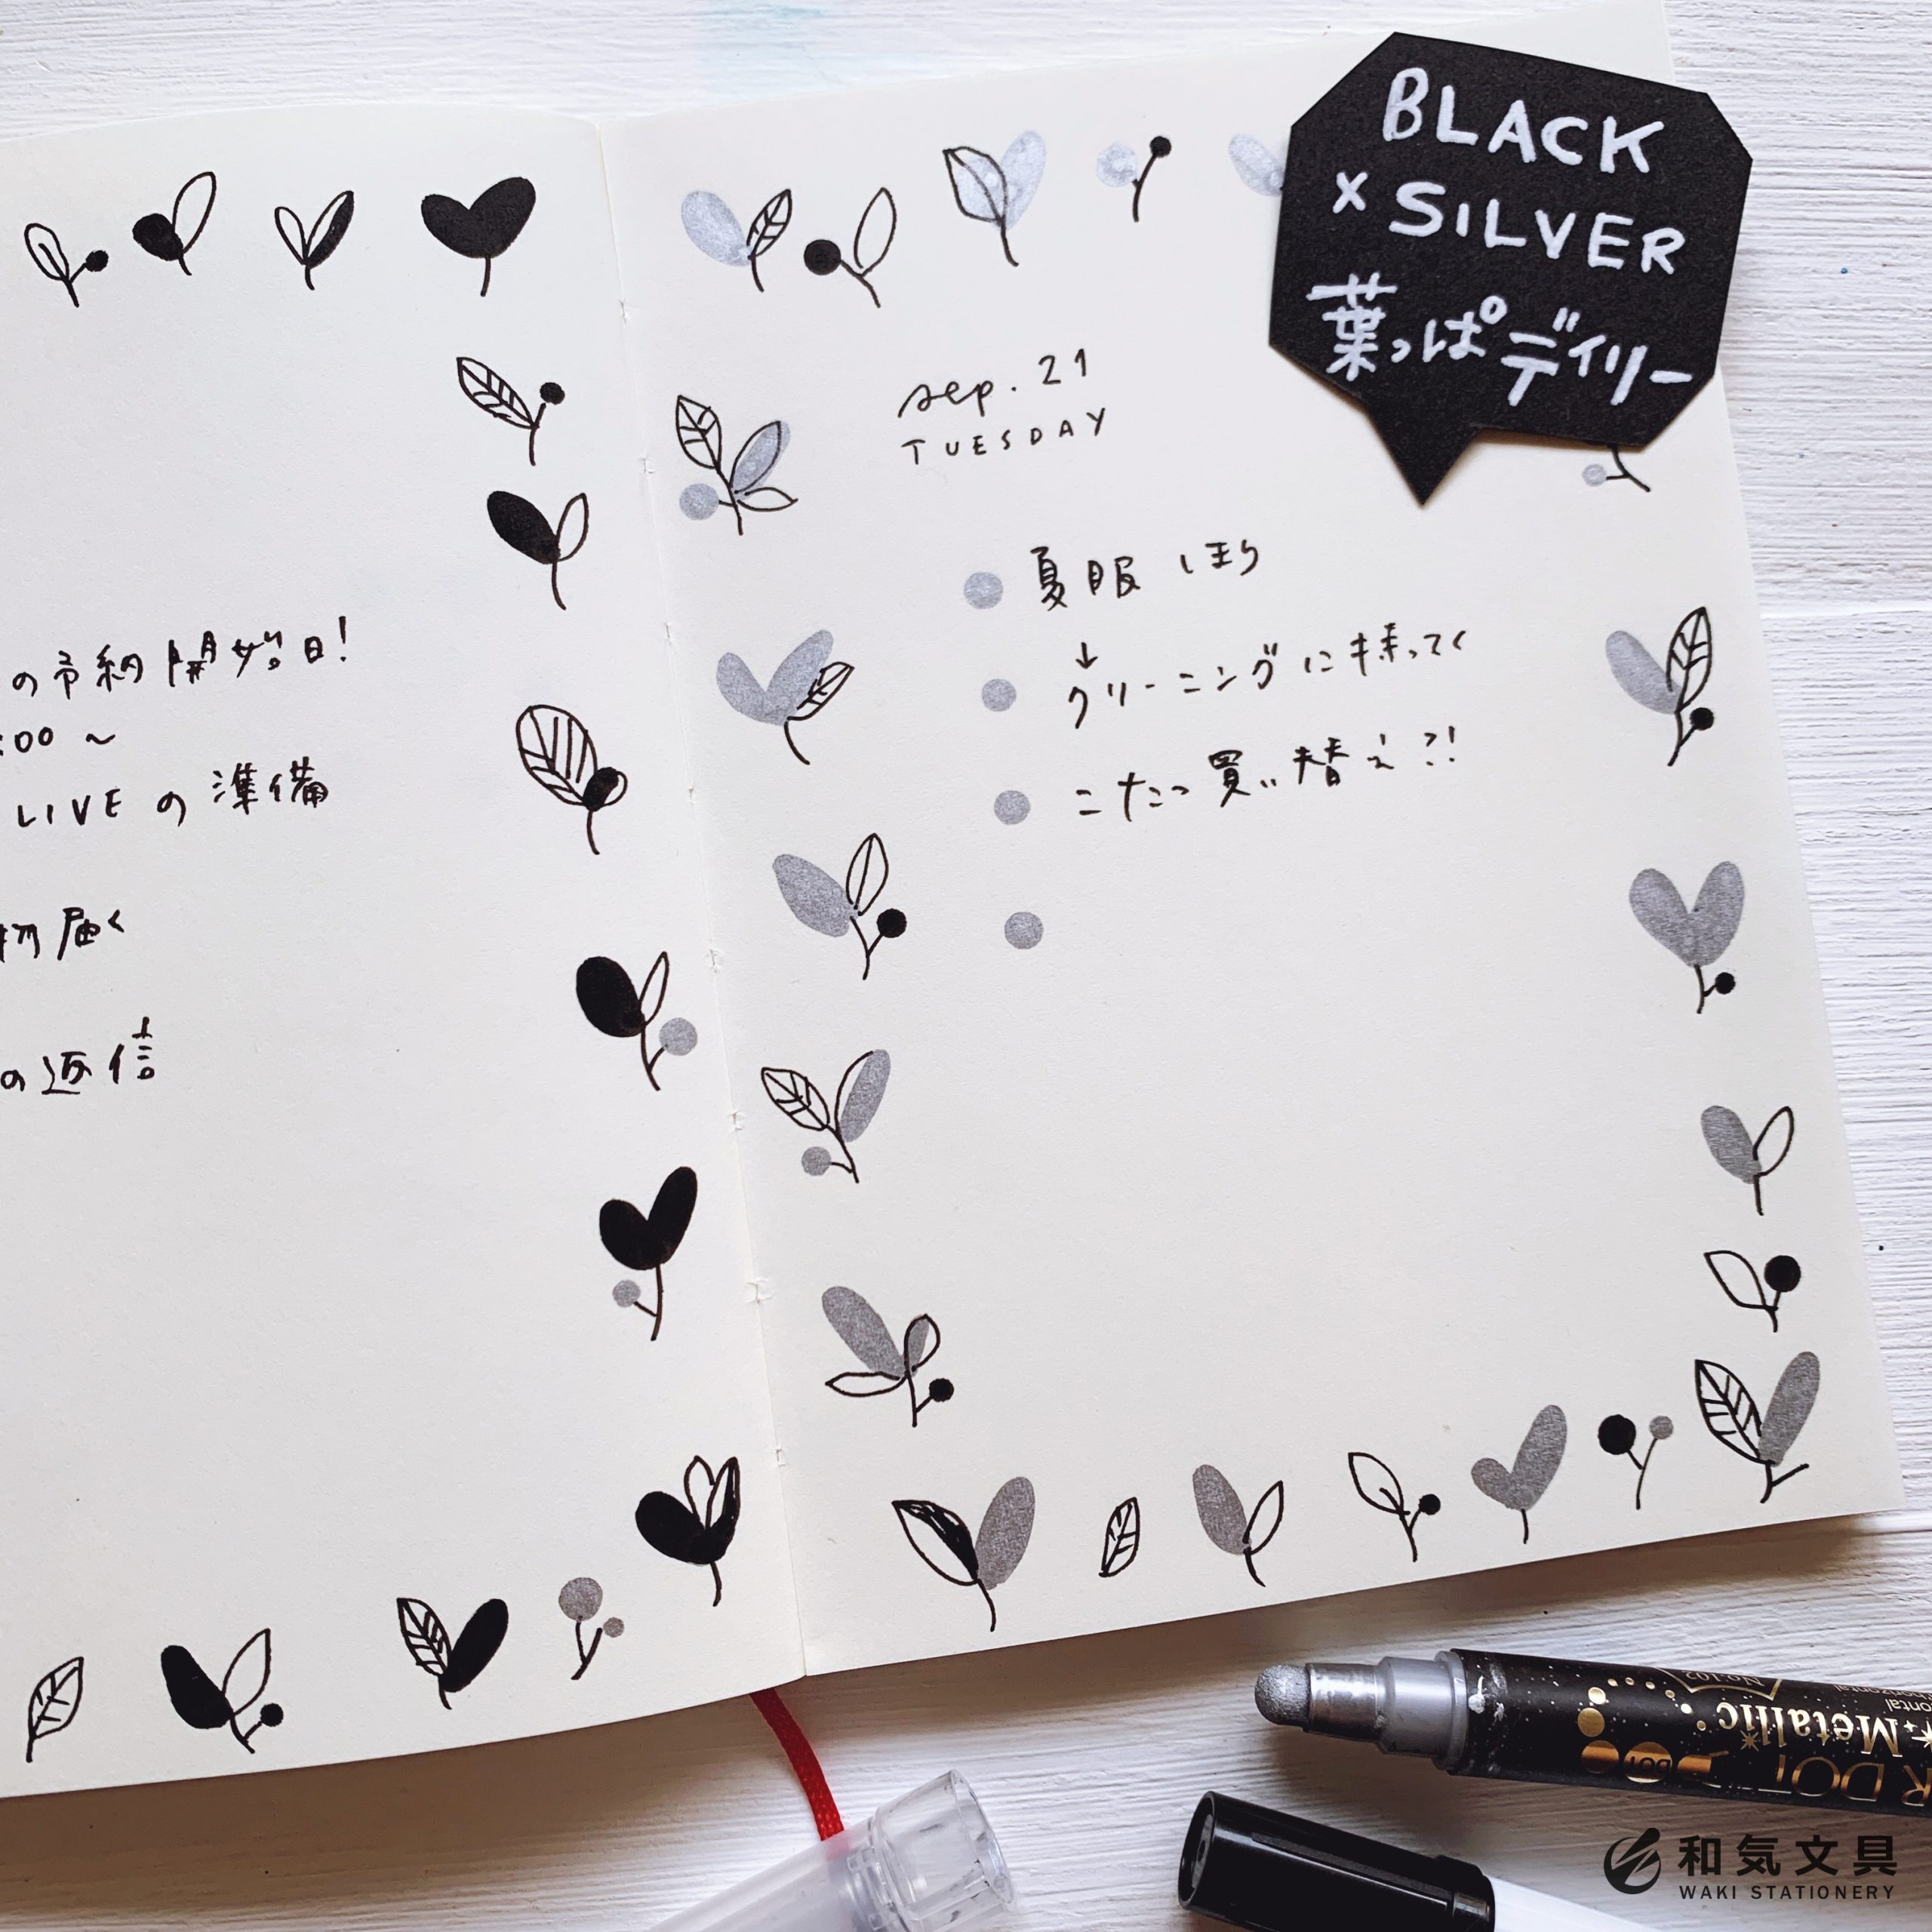 BLACK
× SILVER
葉っぱデイリー
の予約開始日!
:00 ~
LIVE の準備
物届く
の返信
sep. 21
TUESDAY
夏服 しまう
↓
クリーニングに持ってく
こたつ買い替え?!
Metallic
No.102
和気文具
WAKI STATIONERY